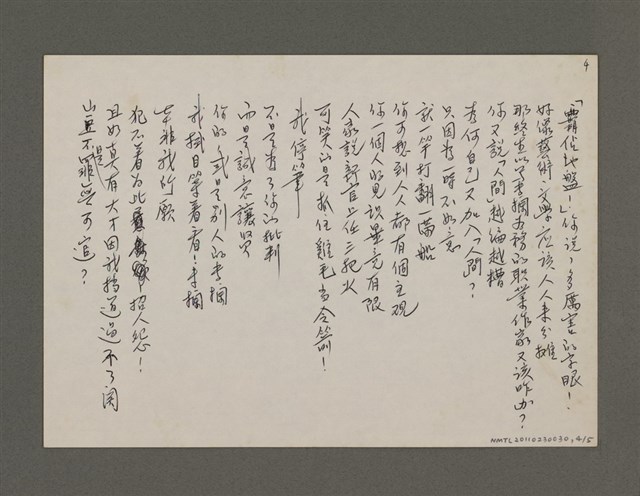 4
「霸佔地盤！」你說，多厲害的字眼！
好像藝術、文學應該人人來分攤
那終生以筆桿為務的職業作家又該咋办？
你又說「人間」越編越糟
為何自己又加入「人間」？
只因為一時不如意
就一竿打翻一船
你可想到人人都有個主觀
你一個人的見識畢竟有限
人家說新官上任三把火
可笑的是抓住雞毛當令箭！
我停筆
不是為了你的批判
而是誠意讓賢
你的、或是別人的專欄
我拭目等著看！專欄
本非我所願
犯不着為此招人怨！
且如真有大才因我擋道過不了關
山豆不是罪無可逭？
NMTL20110230030, 4/5